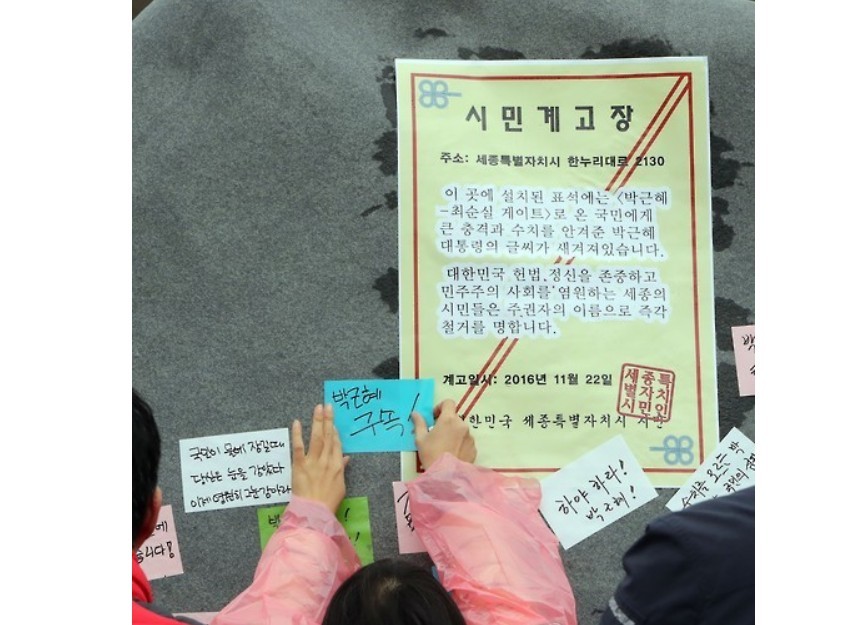 시민계고장
주소: 세종특별자치시 한누리대로 2130
이 곳에 설치된 표석에는 <박근혜
-최순실 게이트>로 온 국민에게
큰 충격과 수치를 안겨준 박근혜
대통령의 글씨가 새겨져있습니다.
대한민국 헌법 정신을 존중하고
민주주의 사회를 염원하는 세종의
시민들은 주권자의 이름으로 즉각
철거를 명합니다.
계고일시: 2016년 11월 22일
세종특
별자치
시민인
한민국 세종특별자치시
박근혜
구속!
국민이 물에 잠길때
당신은 눈을 감았다
이제 영원히
하야 하라!
박근혜!